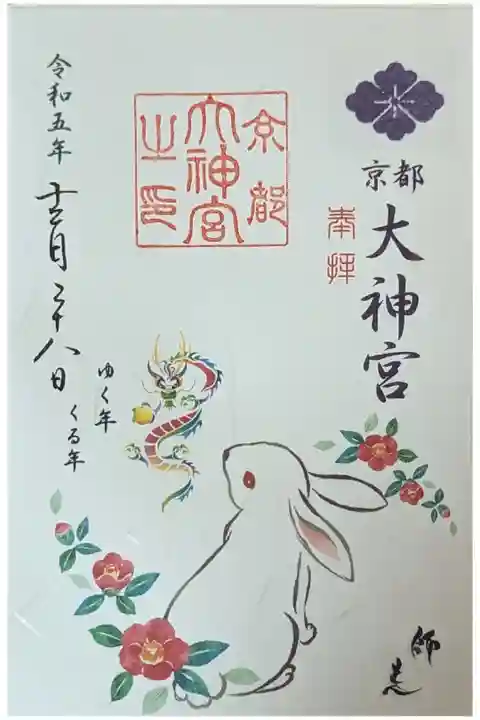 京都
大神宮
奉拝
京都
大神宮
之印
令和五年
十二月二十八日
ゆく年
くる年
師走